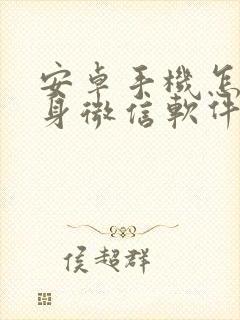 安卓手機怎
身微信軟件
侯超群